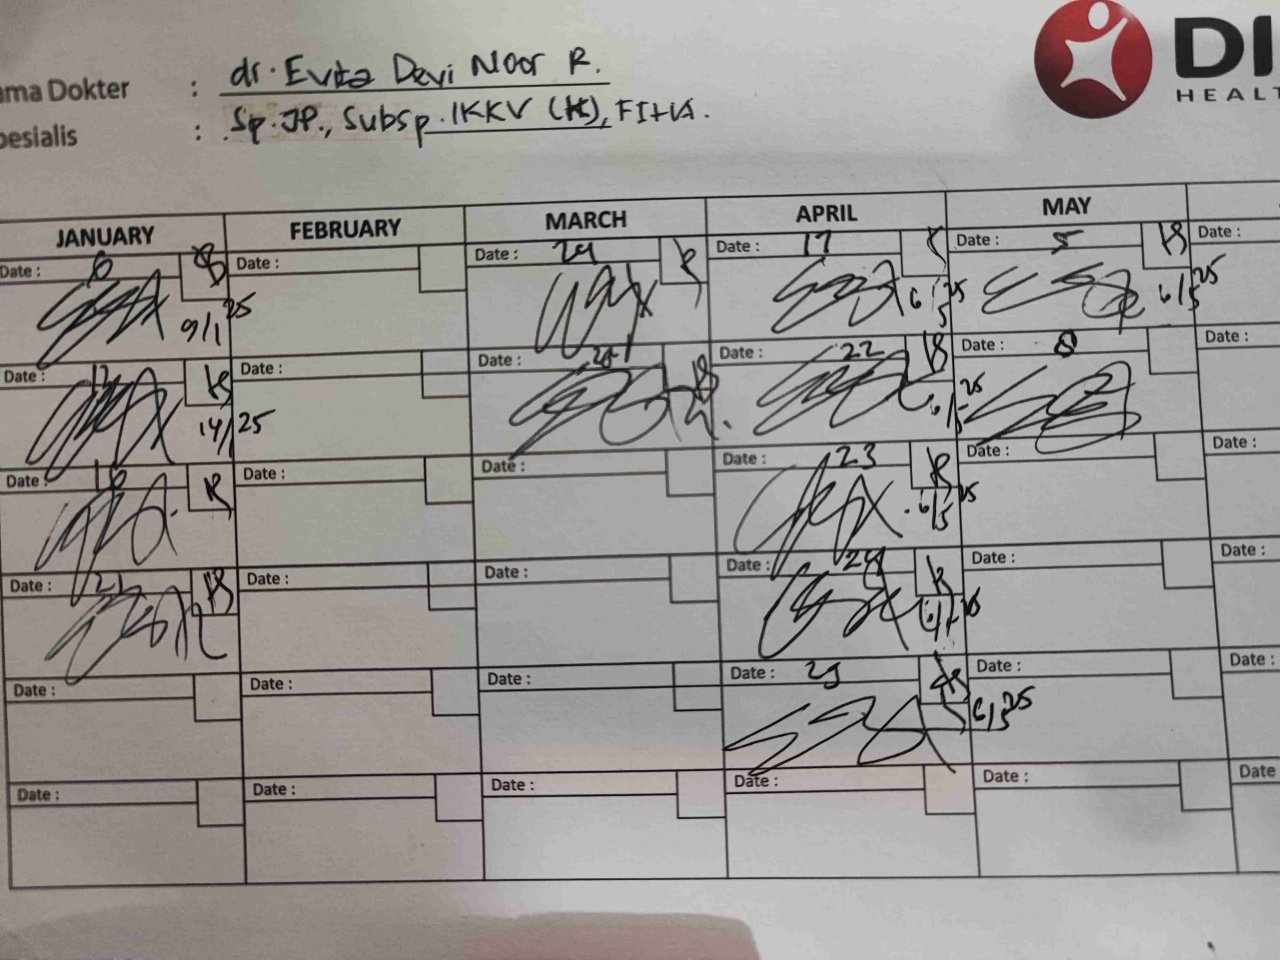 ama Dokter : dr. Evita Devi Noor R.
pesialis : Sp. JP., Subsp. IKKV (K), FIHA.
DI
HEALT
JANUARY FEBRUARY MARCH APRIL MAY
Date : 6 Date : Date : 24 Date : 17 Date : 5 Date :
9/1 25 6/5 25 6/5 25
Date : Date : Date : Date : 22 Date : 8 Date :
14/1 25 6/5 25
Date : Date : Date : Date : 23 Date : Date :
6/5 25
Date : 21 Date : Date : Date : 24 Date : Date :
6/5 25
Date : Date : Date : Date : 25 Date : Date :
6/5 25
Date : Date : Date : Date : Date : Date